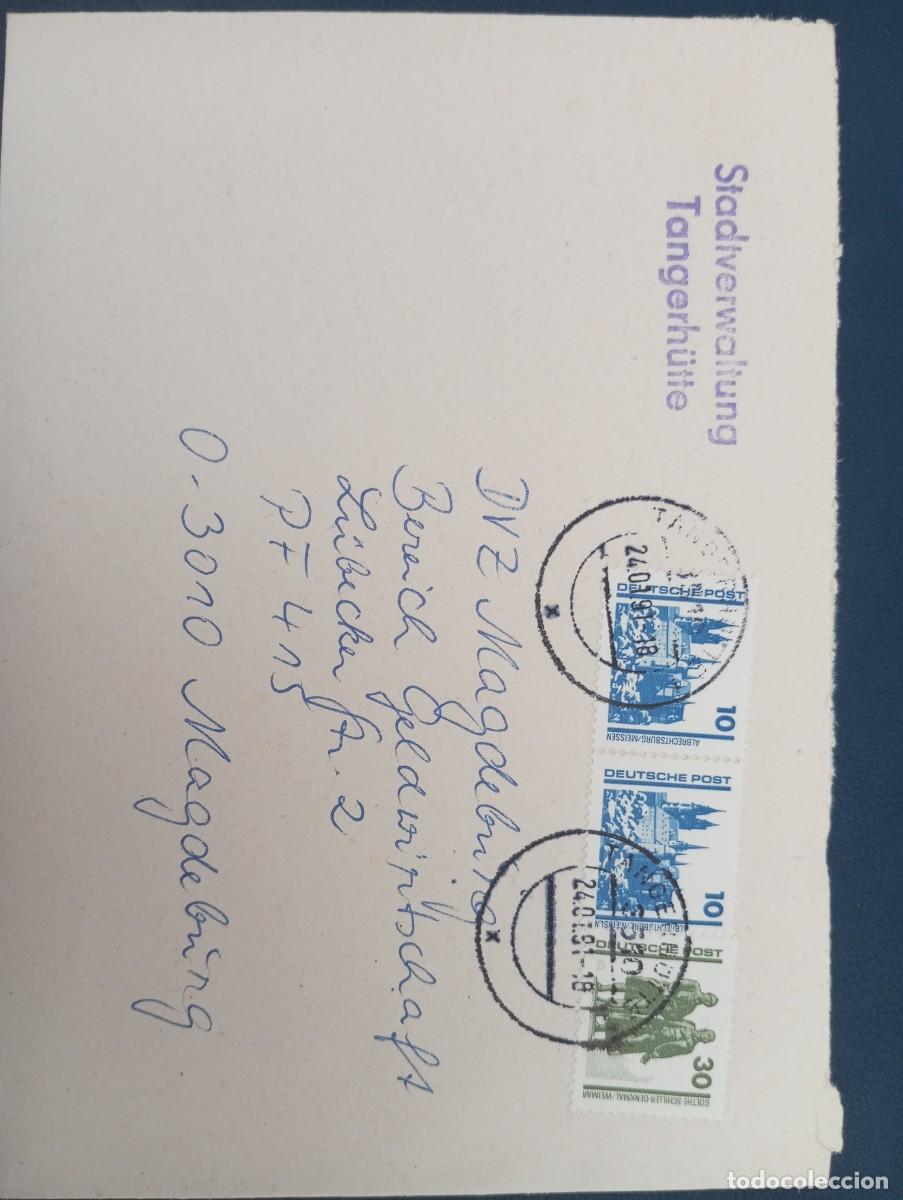 Stadtverwaltung
Tangerhütte
DVZ Magdeburg
Bereich Geldwirtschaft
Lübecker Str. 2
PF 415
O-3010 Magdeburg
DEUTSCHE POST
10
ALBRECHTSBURG/MEISSEN
DEUTSCHE POST
10
ALBRECHTSBURG/MEISSEN
DEUTSCHE POST
30
GOETHE-SCHILLER-DENKMAL/WEIMAR
24.01.91-18
24.01.91-18
todocoleccion